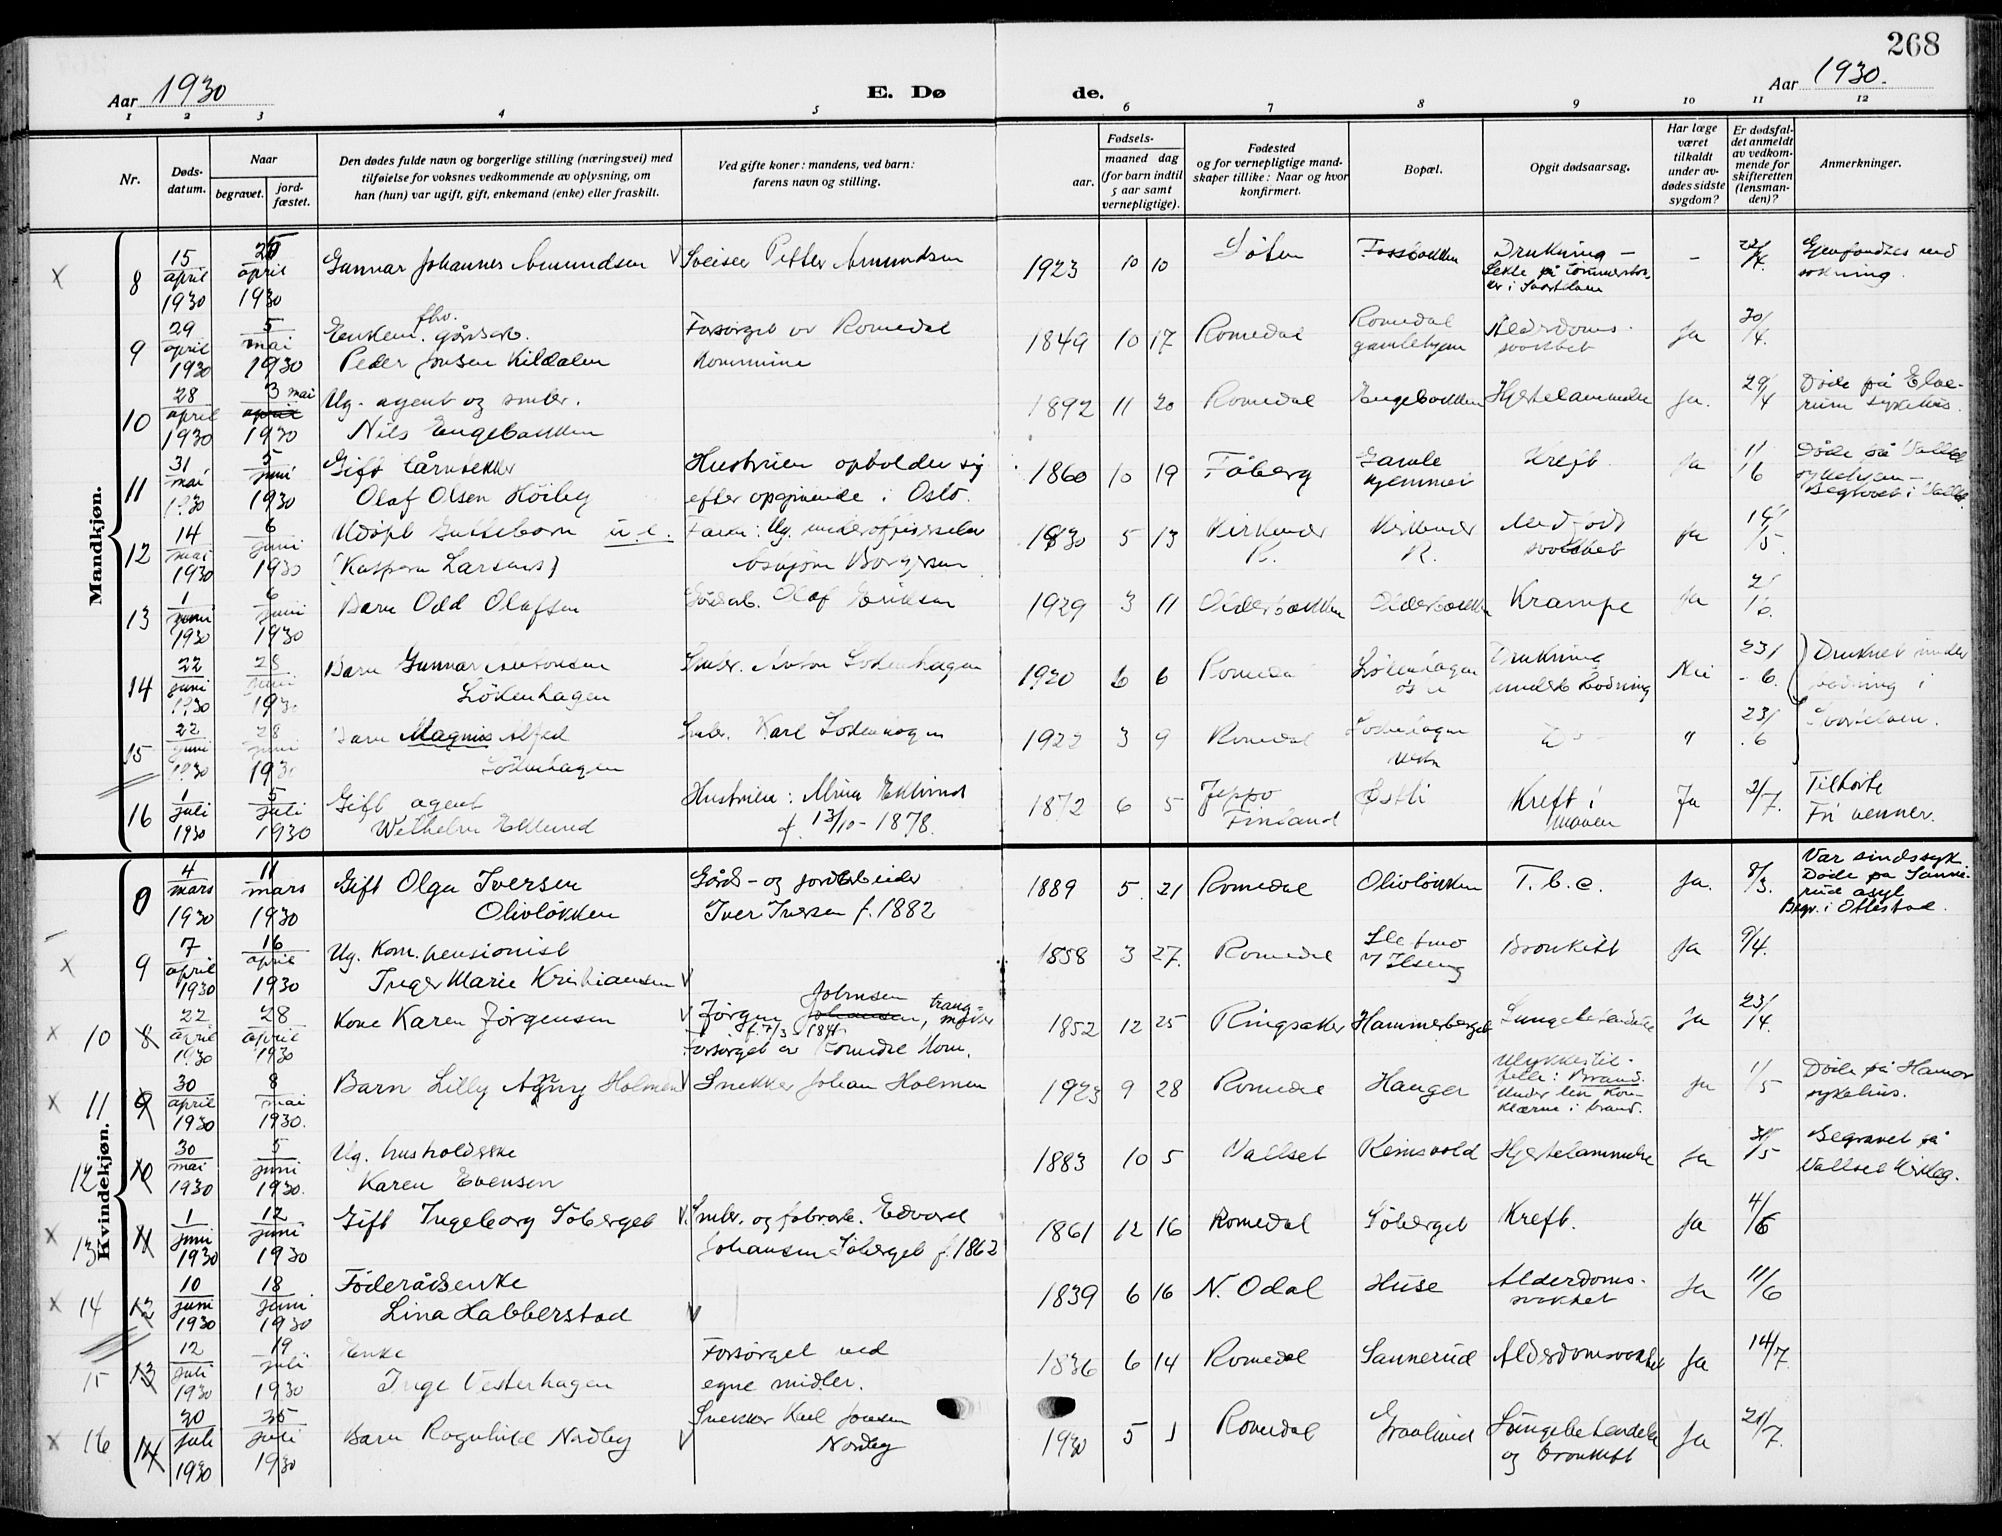 268
Aar 1930
E. Dø
de.
Aar 1930.
1 2 3 4 5 6 7 8 9 10 11 12
Nr.
Døds-
datum.
Naar
begravet.
jord-
fæstet.
Den dødes fulde navn og borgerlige stilling (næringsvei) med
tilføielse for voksnes vedkommende av oplysning, om
han (hun) var ugift, gift, enkemand (enke) eller fraskilt.
Ved gifte koner: mandens, ved barn:
farens navn og stilling.
Fødsels-
aar.
maaned dag
(for barn indtil
5 aar samt
vernepligtige).
Fødested
og for vernepligtige mand-
skaper tillike: Naar og hvor
konfirmert.
Bopæl.
Opgit dødsaarsag.
Har læge
været
tilkaldt
under av-
dødes sidste
sygdom?
Er dødsfal-
det anmeldt
av vedkom-
mende for
skifteretten
(lensman-
den)?
Anmerkninger.
Mandkjøn.
8 15 april 1930 april 1930 Gunnar Johannes Amundsen Sveiser Petter Amundsen 1923 10 10 Drukning –
9 29 april 1930 5 mai 1930 Enkem. fhv. gårdsarb. Forsörget av Romedal 1849 10 17 Romedal Romedal gamlehjem Alderdoms- Ja 30/4.
Peder Jonsen Kildalen Kommune
10 28 april 1930 3 mai 1930 Ug. agent og smbr. 1892 11 20 Romedal Engebakken Hjertelammelse Ja. 29/4 Døde på Elve-
Nils Engebakken rum sykehus.
11 31 mai 1930 5 juni 1930 Gift Hustruen opholder sig 1860 10 19 Fåberg Gamle hjemmet Kreft Ja Døde på Vallset
Olaf Olsen Höiby efter opgivende i Oslo. sykehjem –
Begravet i Vallset.
12 14 mai 1930 6 juni 1930 Udöpt Guttebarn 1930 5 13 Kirkenær Kirkenær Medfödt svakhet Ja
(Kaspara Larsens) Asbjörn Borgersen
13 1 juni 1930 6 juni 1930 Barn Odd Olafsen Gårdsarb. Olaf Eriksen 1929 3 11 Olderbakken Olderbakken Krampe Ja
14 22 juni 1930 28 juni 1930 Barn Gunnar Antonsen Smbr. Anton Lökenhagen 1920 6 6 Romedal Lökenhagen Drukning Nei 23/6. Druknet under
Lökenhagen under badning badning i
15 22 juni 1930 28 juni 1930 Barn Magnus Alfred Smbr. Karl Lökenhagen 1922 3 9 Romedal Lökenhagen " 23/6 Svartelven.
Lökenhagen
16 1 juli 1930 5 juli 1930 Gift agent Hustruen: Alvina Eklund 1872 6 5 Jeppo Østli Kreft i Ja 2/7. Tilhörte
Wilhelm Eklund f. 13/10 – 1878. Finland maven Fri venner.
Kvindekjøn.
8 4 mars 1930 11 mars 1930 Gift Olga Iversen Gårds- og jordarbeider 1889 5 21 Romedal Olivløkken T.b.c. Ja. 8/3. Var sindssyk.
Olivløkken Iver Iversen f. 1882 Døde på Sanne-
rud asyl
Begr. i Ottestad.
9 7 april 1930 16 april 1930 Ug. Kom. pensionist 1858 3 27. Romedal Sletmo Bronkitt Ja 9/4.
Inger Marie Kristiansen v/ Ilseng
10 8 22 april 1930 28 april 1930 Kone Karen Jörgensen Jörgen Johansen Johnsen, 1852 12 25 Ringsaker Hammerberget Lungebetendelse Ja 23/4.
Forsörget av Romedal Kom.
11 9 30 april 1930 8 mai 1930. Barn Lilly Agny Holmen Snekker Johan Holmen 1923 9 28 Romedal Hanger Ulykkestil- Ja 1/5 Døde på Hamar
felle: Brand. sykehus.
klærne i brand.
12 10 30 mai 1930 5 juni 1930. Ug. husholderske 1883 10 5 Vallset Reinsvold Hjertelammelse Ja 31/5 Begravet på
Karen Evensen Vallset Kirkeg.
13 11 1 juni 1930 12 juni 1930 Gift Ingeborg Söberget Smbr. og fabrarb. Edvard 1861 12 16 Romedal Söberget Kreft. Ja 4/6
Johansen Söberget f. 1862
14 12 10 juni 1930 18 juni 1930 Föderådsenke 1839 6 16 N. Odal Huse Alderdoms- Ja 11/6
Lina Habberstad svakhet
15 13 12 juli 1930 19 juli 1930 Enke Forsörget ved 1836 6 14 Romedal Sannerud Alderdomssvakhet Ja 14/7.
Inge Vesterhagen egne midler.
16 14 20 juli 1930 25 juli 1930 Barn Ragnhild Nordby Snekker Karl Jonsen 1930 5 1 Romedal Lungebetendelse Ja 21/7.
Nordby og bronkitt